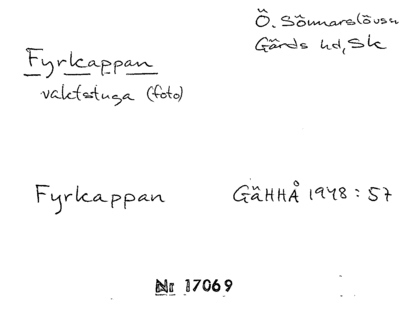 Ö. Sönnarslövs sn
Gärds hd, Sk
Fyrkappan
vaktstuga (foto)
Fyrkappan GäHHÅ 1948: 57
Nr 17069